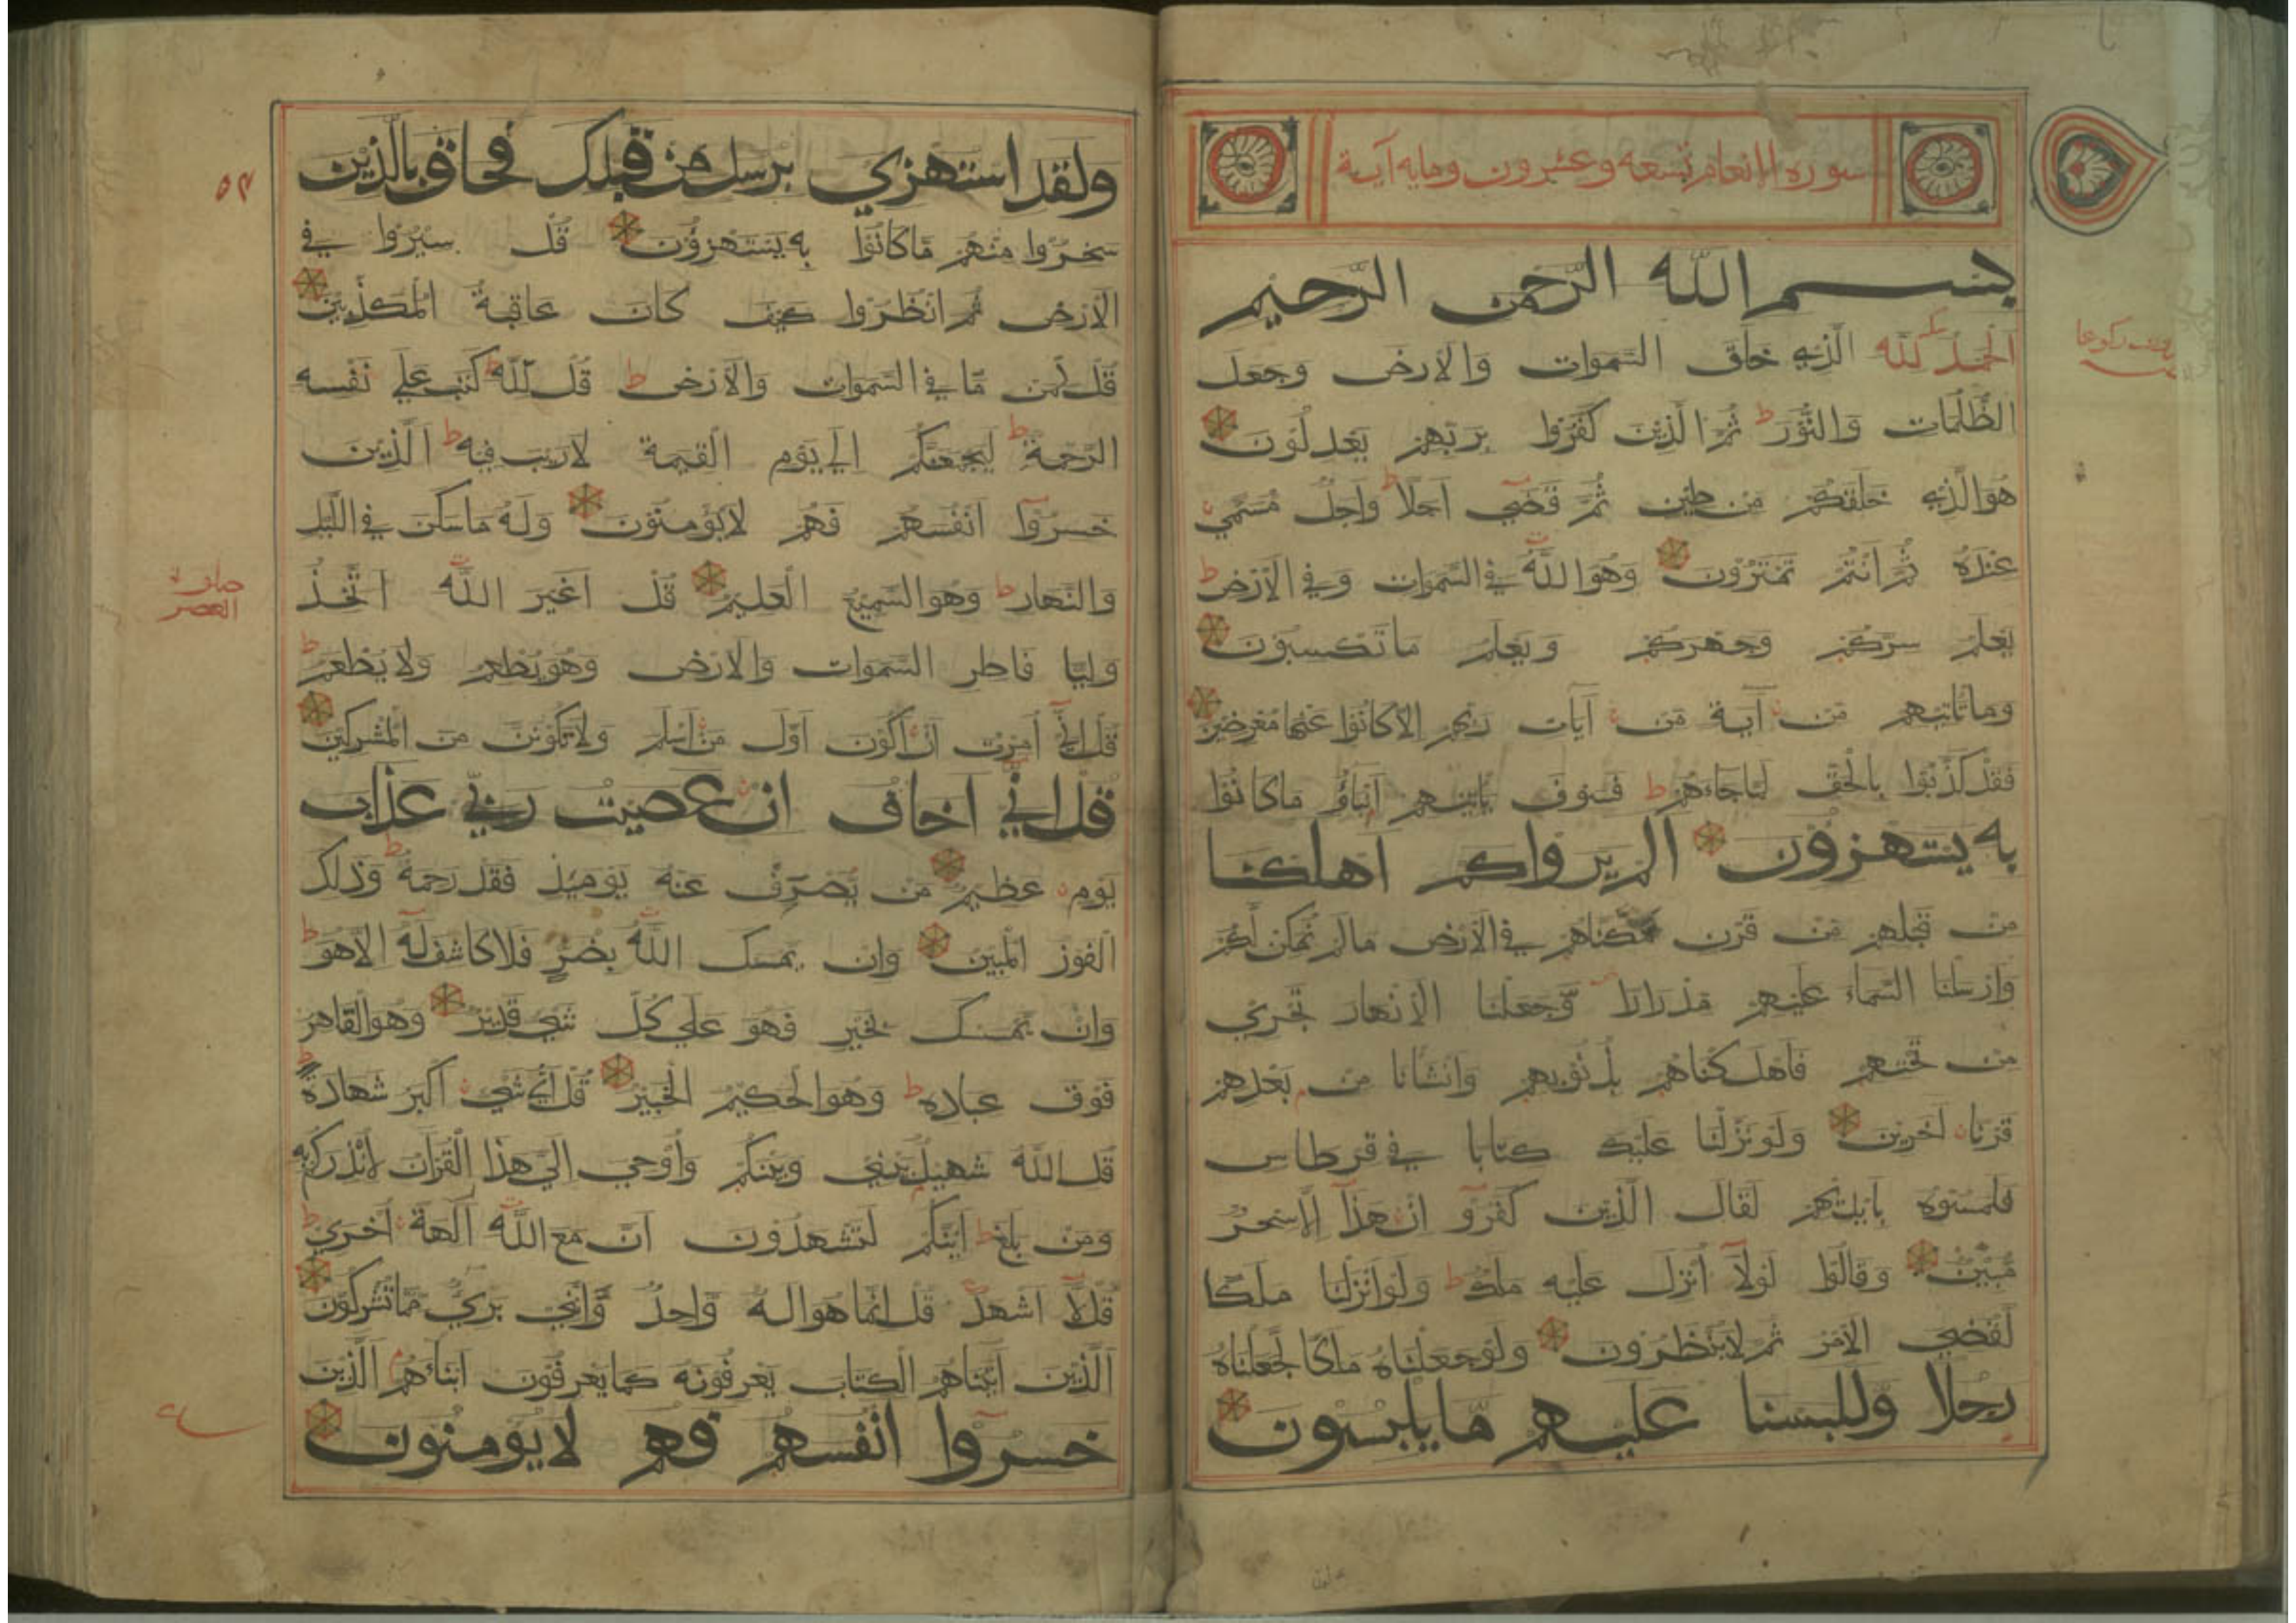 سورة الانعام تسعه وعشرون ومايه آية
بسم الله الرحمن الرحيم
الحمد لله الذي خلق السموات والارض وجعل
الظلمات والنور ط ثم الذين كفروا بربهم يعدلون
هو الذي خلقكم من طين ثم قضي اجلا ط واجل مسمي
عنده ثم انتم تمترون وهو الله في السموات وفي الارض ط
يعلم سركم وجهركم ويعلم ما تكسبون
وما تاتيهم من آية من آيات ربهم الا كانوا عنها معرضين
فقد كذبوا بالحق لما جاءهم ط فسوف ياتيهم انباؤ ما كانوا
به يستهزؤن الم يروا كم اهلكنا
من قبلهم من قرن مكناهم في الارض ما لم نمكن لكم
وارسلنا السماء عليهم مدرارا وجعلنا الانهار تجري
من تحتهم فاهلكناهم بذنوبهم وانشانا من بعدهم
قرنا اخرين ولو نزلنا عليك كتابا في قرطاس
فلمسوه بايديهم لقال الذين كفروا ان هذا الا سحر
مبين وقالوا لولا انزل عليه ملك ط ولو انزلنا ملكا
لقضي الامر ثم لا ينظرون ولو جعلناه ملكا لجعلناه
رجلا وللبسنا عليهم ما يلبسون
٥٣
ولقد استهزي برسل من قبلك فحاق بالذين
سخروا منهم ما كانوا به يستهزؤن قل سيروا في
الارض ثم انظروا كيف كان عاقبة المكذبين
قل لمن ما في السموات والارض ط قل لله ط كتب علي نفسه
الرحمة ط ليجمعنكم الي يوم القيمة لا ريب فيه ط الذين
خسروا انفسهم فهم لا يؤمنون وله ما سكن في الليل
والنهار ط وهو السميع العليم قل اغير الله اتخذ
وليا فاطر السموات والارض وهو يطعم ولا يطعم ط
قل اني امرت ان اكون اول من اسلم ولا تكونن من المشركين
قل اني اخاف ان عصيت ربي عذاب
يوم عظيم من يصرف عنه يومئذ فقد رحمه ط وذلك
الفوز المبين وان يمسسك الله بضر فلا كاشف له الا هو ط
وان يمسسك بخير فهو علي كل شي قدير وهو القاهر
فوق عباده ط وهو الحكيم الخبير قل اي شي اكبر شهادة
قل الله شهيد بيني وبينكم واوحي الي هذا القران لانذركم به
ومن بلغ ط ائنكم لتشهدون ان مع الله الهة اخري ط
قل لا اشهد قل انما هو اله واحد وانني بري مما تشركون
الذين اتيناهم الكتاب يعرفونه كما يعرفون ابناءهم الذين
خسروا انفسهم فهم لا يؤمنون
العصر